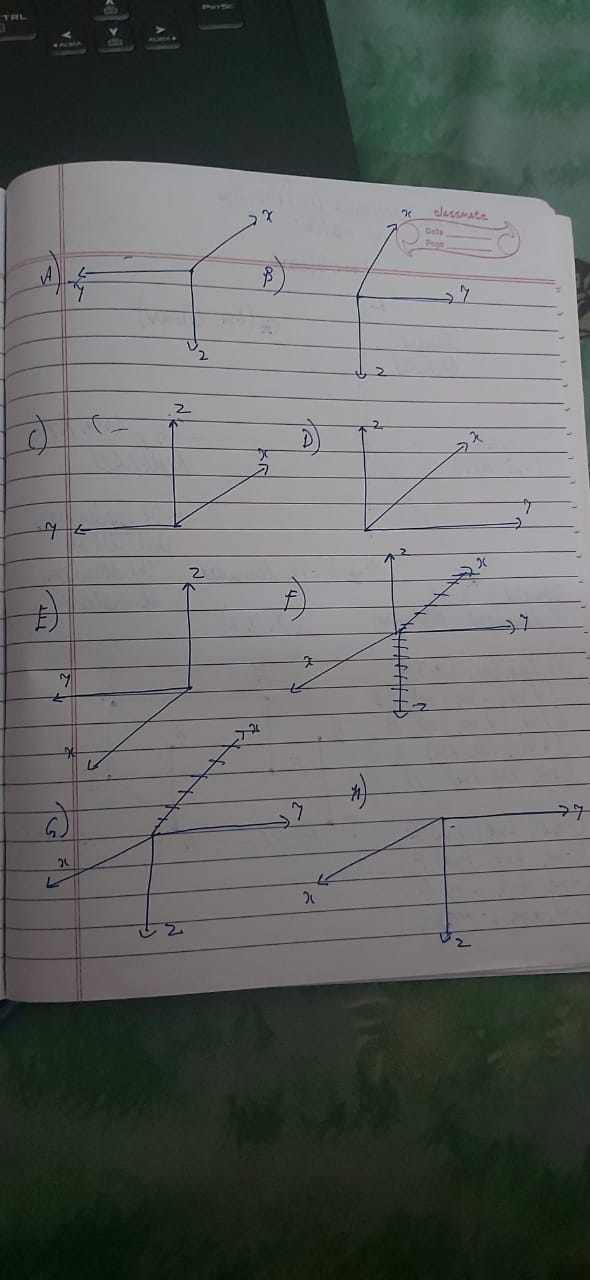 CTRL
PRTSC
ALMA
ALMA+
classmate
Date
Page
A) x y z
B) x y z
C) (- z x y
D) z x y
E) z y x
F) z x y x -z
G) x y x z
H) y x z